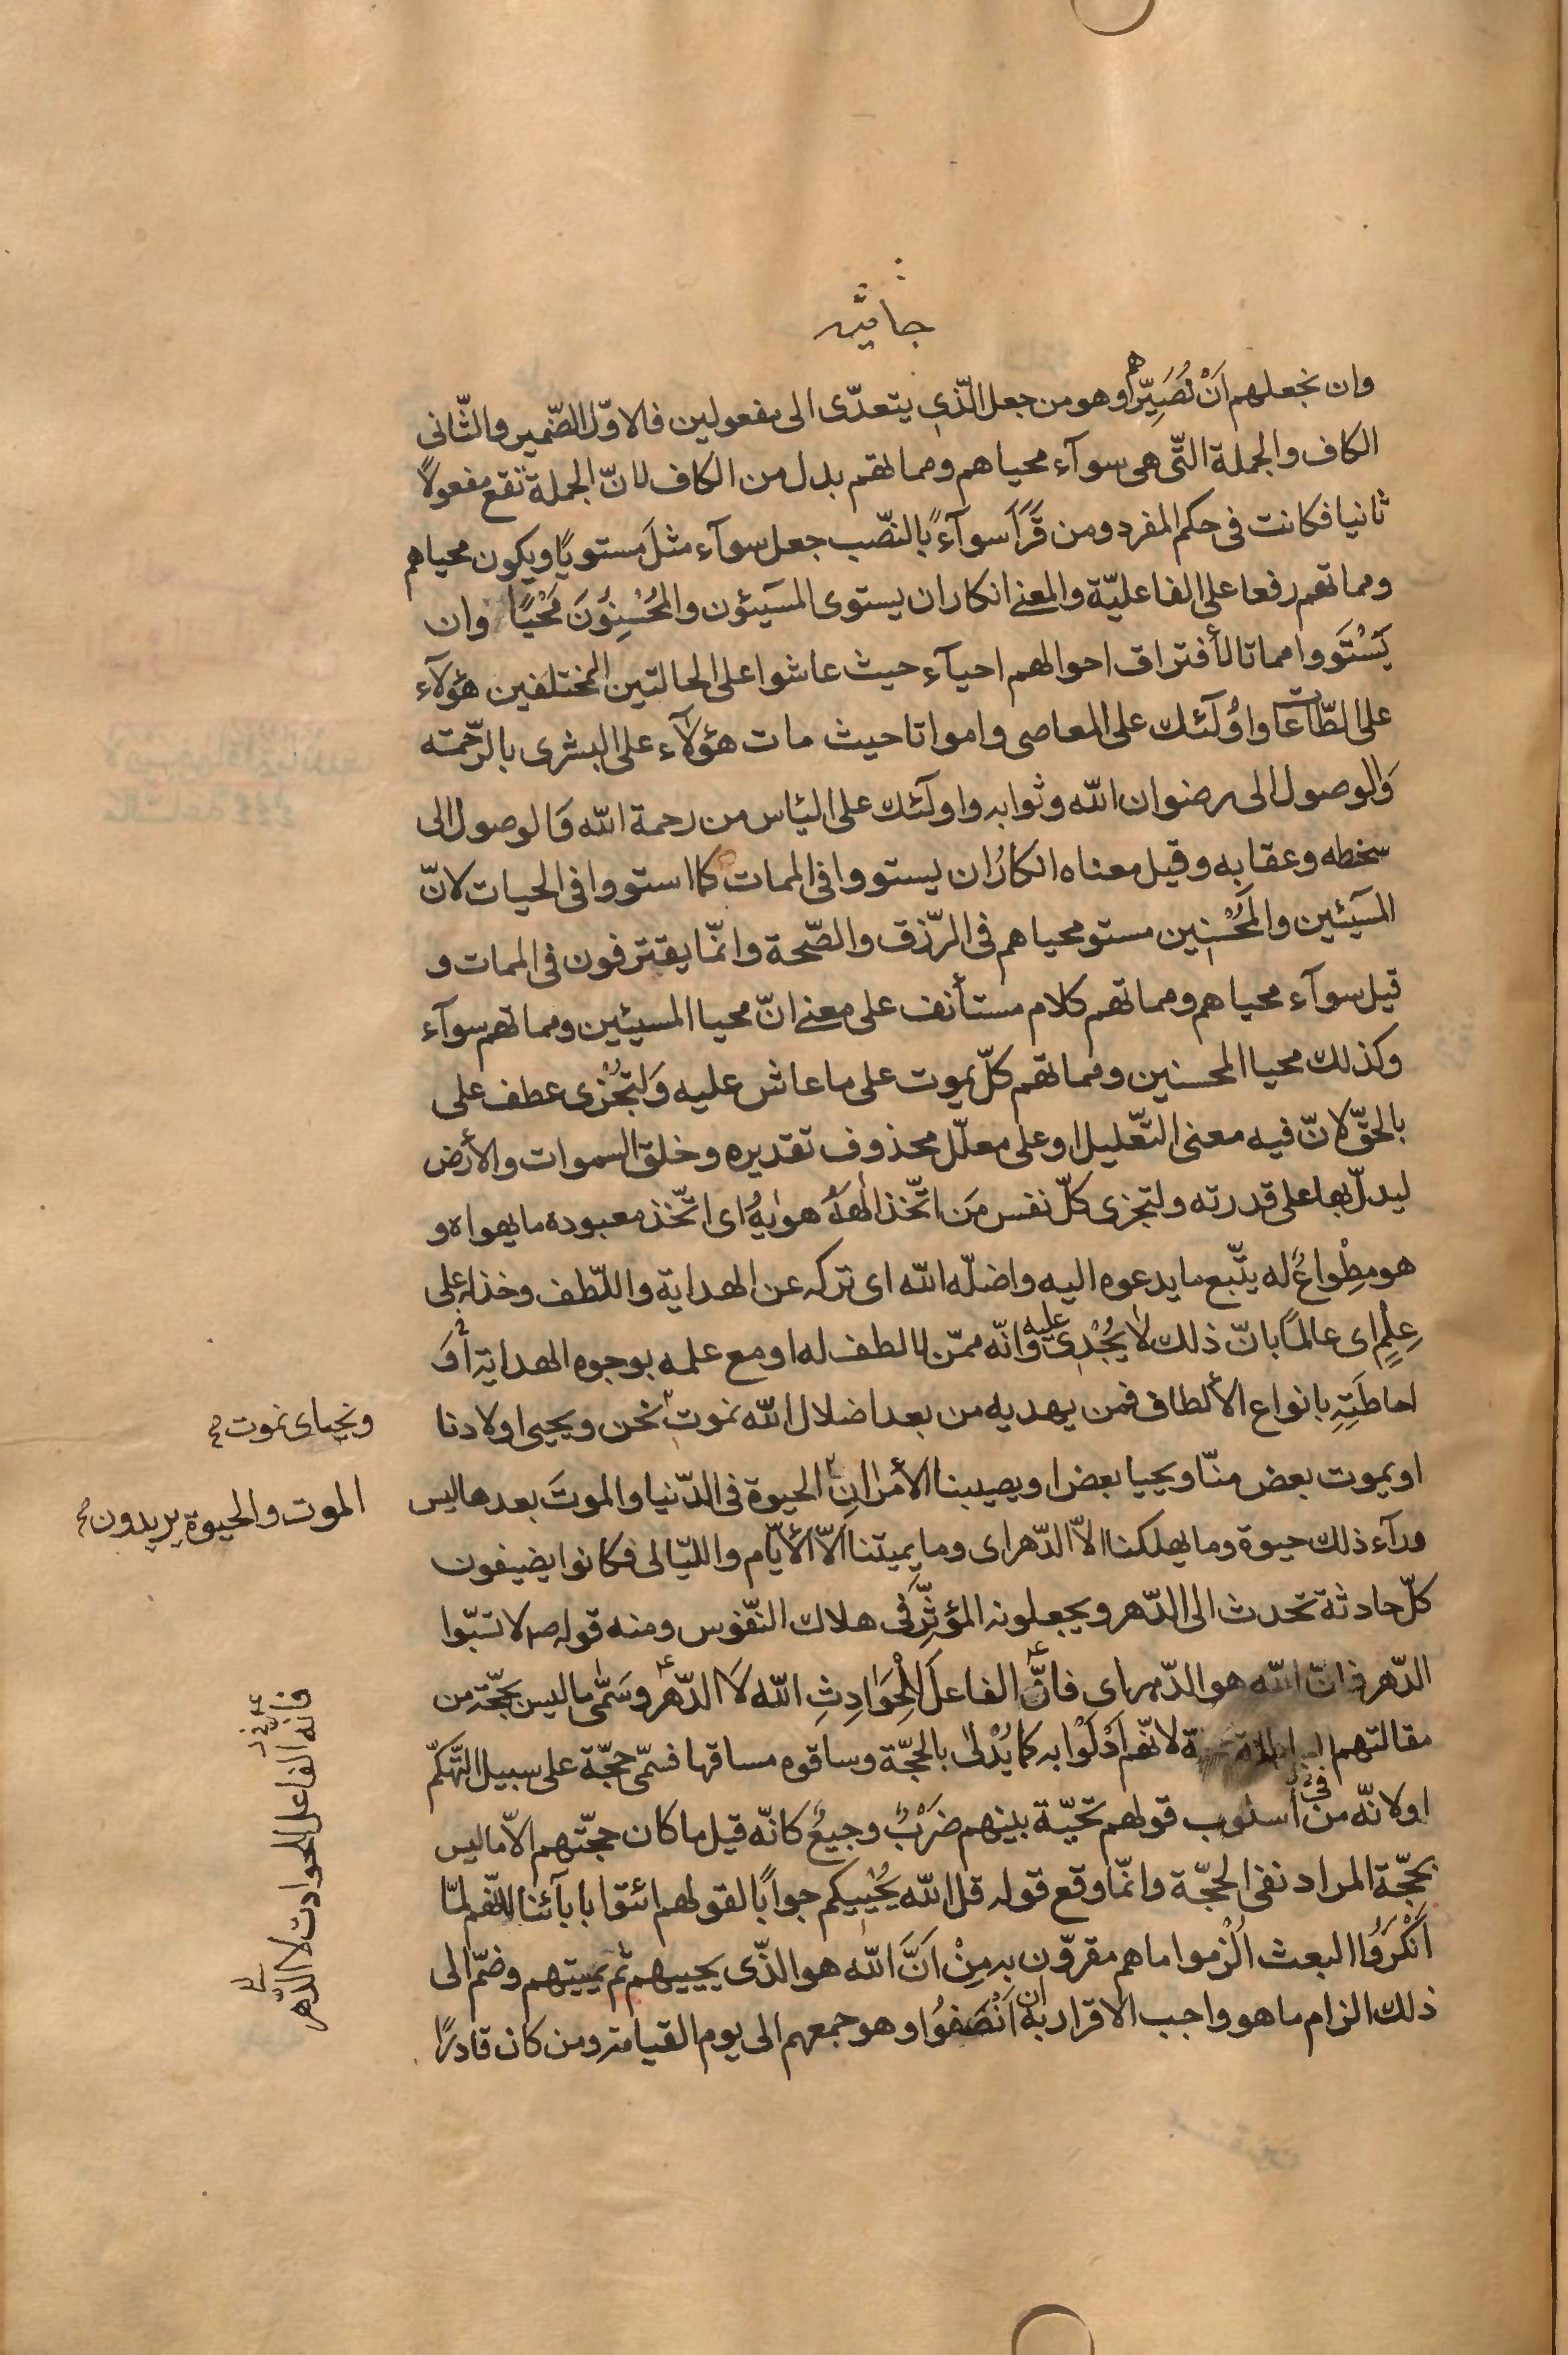 جاثيه
وان نجعلهم اَنْ نُصَيِّرهم او هو من جعل الّذى يتعدّى الى مفعولين فالاوّل الضّمير والثّانى
الكاف والجملة التّى هى سوآء محياهم ومماتهم بدل من الكاف لانّ الجملة تقع مفعولاً
ثانيا فكانت فى حكم المفرد ومن قَرَأَ سوآءً بالنصّب جعل سوآء مثلَ مستويًا ويكون محياهم
ومماتهم رفعا على الفاعليّة والمعنے انكار ان يستوى المسَيئون والمُحْسِنوُنَ مَحْيًا وان
يَسْتَووا مماتا لأفتراق احوالهم احيآء حيث عاشوا على الحالتين المختلفين هؤلآء
على الطّاعات واوُلَٓئك على المعاصى وامواتا حيث مات هؤلآء على البشرى بالرّحمته
وَالوصول الى رضوان الله وثوابه واولَٓئك على الئاس من رحمة الله وَالوصول الى
سخطه وعقابه وقيل معناه انكارُ ان يستووا فى الممات كما استووا فى الحيات لانّ
المسَيئين والمُحْسنِين مستو محياهم فى الرّزق والصّحة وانمّا يفترقون فى الممات و
قيل سوآء محياهم ومماتهم كلام مستأنف على معنے انّ محيا المسيئين ومماتهم سوآء
وكذلك محيا المحسنين ومماتهم كلّ يموت على ما عاش عليه وَلِتجُزْى عطف على
بالحقّ لانّ فيه معنى التعّليل او على معلّل محذوف تقديره وخلق السموات والأرض
ليدلّ بها على قدرته ولتجزى كلّ نفس مَن اتّخذ الٰهَهُ هوٰيهُ اى اتّخذ معبوده ما يهواه و
هو مِطْواعٌ له يتّبع ما يدعوه اليه واضلّه الله اى تركه عن الهداية واللّطف وخذله على
عِلْمٍ اى عالمًا بانّ ذلك لا يُجْدى عليه وانّه ممّن لا لطف له او مع علمه بوجوه الهداية أوَ
احاطَتِهِ بانواع الألطاف فمن يهديه من بعد اضلال الله نموت نحن ويحيى اولادنا
ونحيا اى نموت
او يموت بعض منّا ويحيا بعض او يصيبنا الأمْران الحيوة فى الدّنيا والموتَ بعدها ليس
الموت والحيوة يريدون
ورآء ذلك حيوة وما يهلكنا الاّ الدّهر اى وما يميتنا الاّ الأيّام والليّالى فكانوا يضيفون
كلّ حادثة تحدث الى الدّهر ويجعلونه المؤثِّرَ فى هلاك النفّوس ومنه قوله صه لا تسّبوا
الدّهر فانّ الله هو الدّهر اى فانّ الفاعلَ لِلْحَوَادِثِ الله لَا الدّهر وسَمّٰى ما ليس بحّجةٍ من
فانه الفاعل للحوادث لا الدّهر
مقالتهم لانهّم اَدْلَوْا به كما يُدْلىٰ بالحجّة وساقوه مساقها فسمّى حجّة على سبيل التّهكّم
او لانّه من فى أسلوب قولهم تحيّة بينهم ضَرْبٌ وجيعٌ كانّه قيل ما كان حجّتهم الاّ ما ليس
بحجّة المراد نفى الحجّة وانمّا وقع قوله قل الله يُحْيِيكم جوابًا لقولهم ائتوا بابآئنا لانهّم لمّا
اَنْكَرَوُا البعث اُلْزموا ما هم مقروّن به مِنْ اَنَّ الله هو الذّى يحييهم ثم يميتهم وضمّ الى
ذلك الزام ما هو واجب الاقرار به ان اَنْصَفوُا وهو جمعهم الى يوم القيامة ومن كان قادرًا